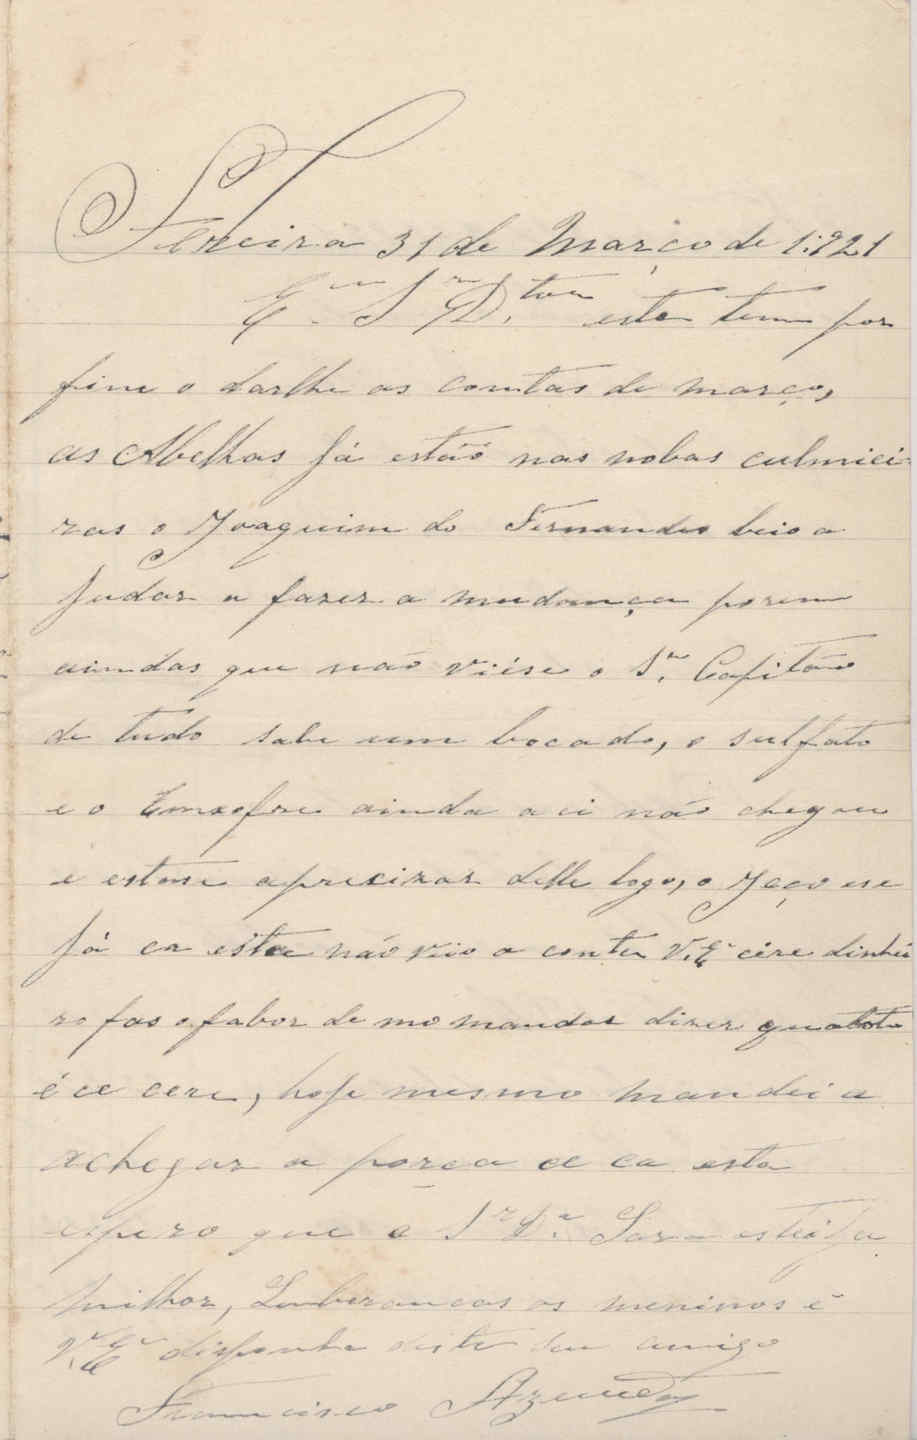 Fereira 31 de Março de 1:921
Eᵐ. Sʳ D.ᵗᵒʳ esta tem por
fim o darlhe as contas de março,
as Abelhas já estão nas nobas culmiei-
ras o Joaquim do Fernandes beio a
judar a fazer a mudança porem
aindas que não viése o Sʳ. Capitão
de tudo sabe um bocado, o sulfato
e o Emxofre ainda aci não chegou
e estase aprecizar delle logo, o Jeço ese
já ca esta não veio a conta V. Eˣ cére dinhei
ro fas o fabor de mo mandar dizer quatoto
é ce cere, hoje mesmo mandei a
achegar a porca ce ca esta
espero que a Sʳ Dª. Sara esteija
milhor, Lembrancas os meninos é
V. Eˣ disponha deste seu amigo
Francisco Azevedo